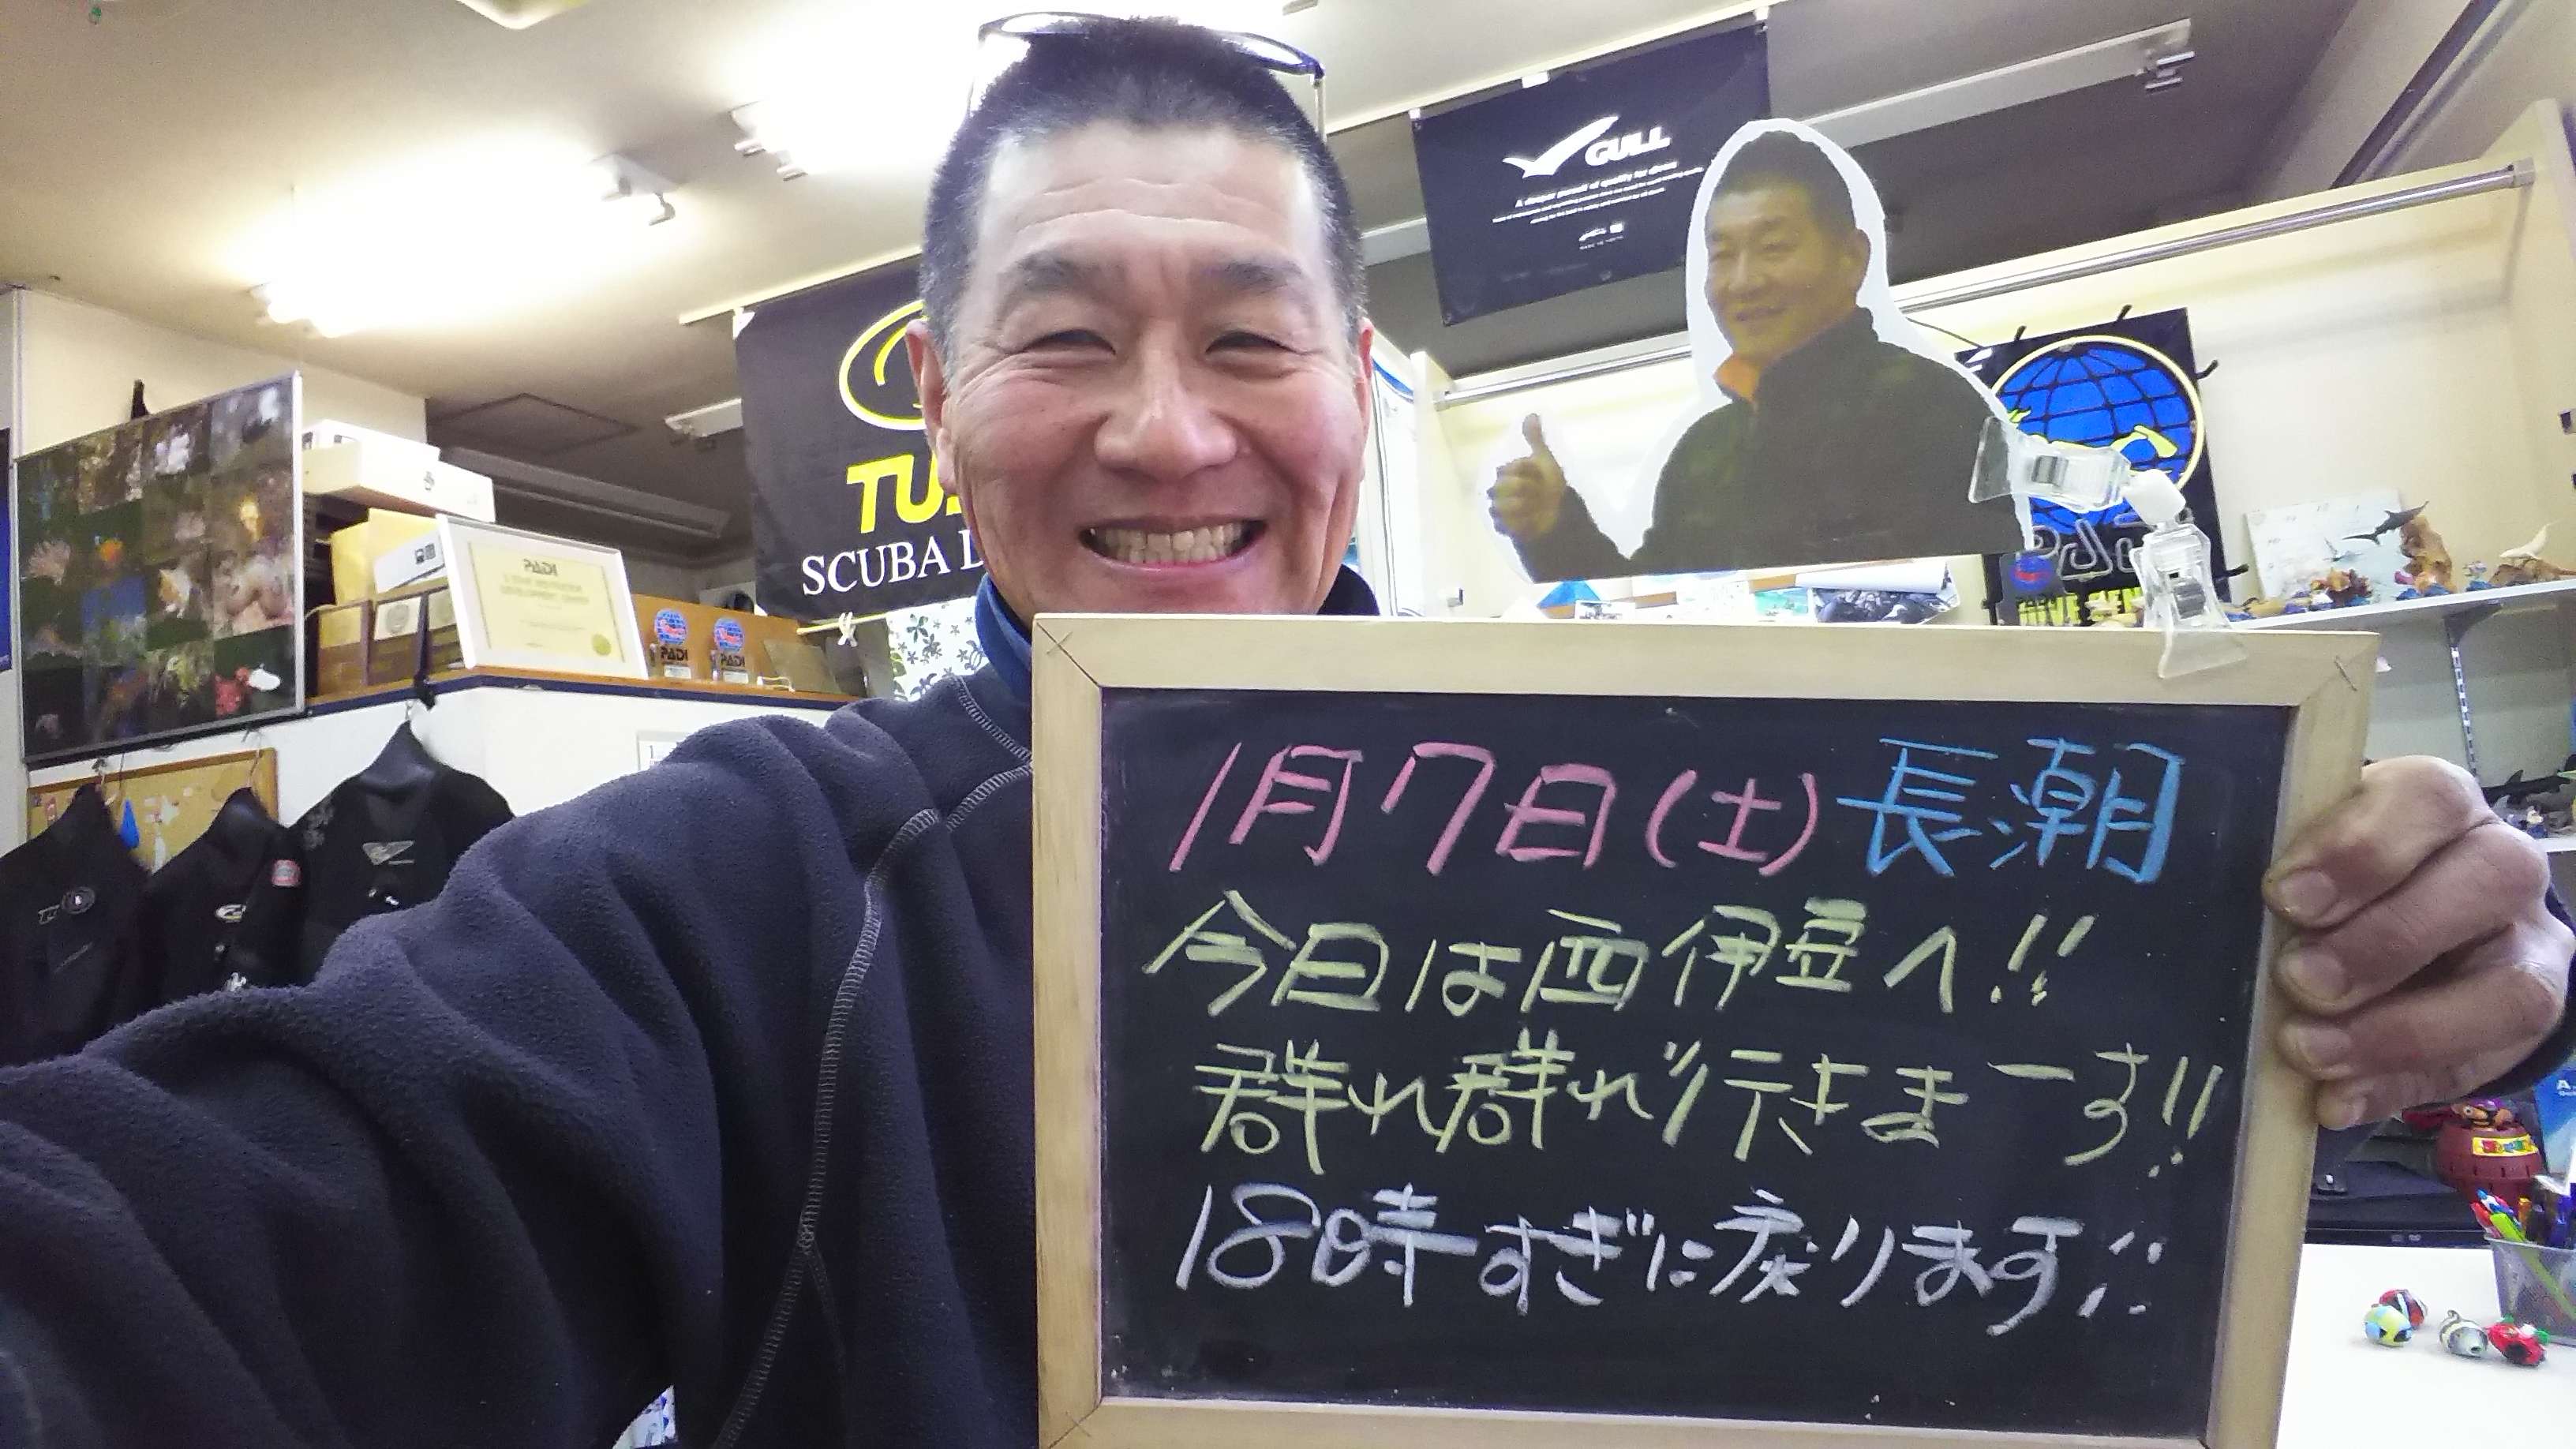 GULL
TUS
SCUBA D
PADI
PADI
PADI
1月7日(土) 長潮
今日は西伊豆へ!!
群れ群れ〃行きまーす!!
18時すぎに戻ります!!